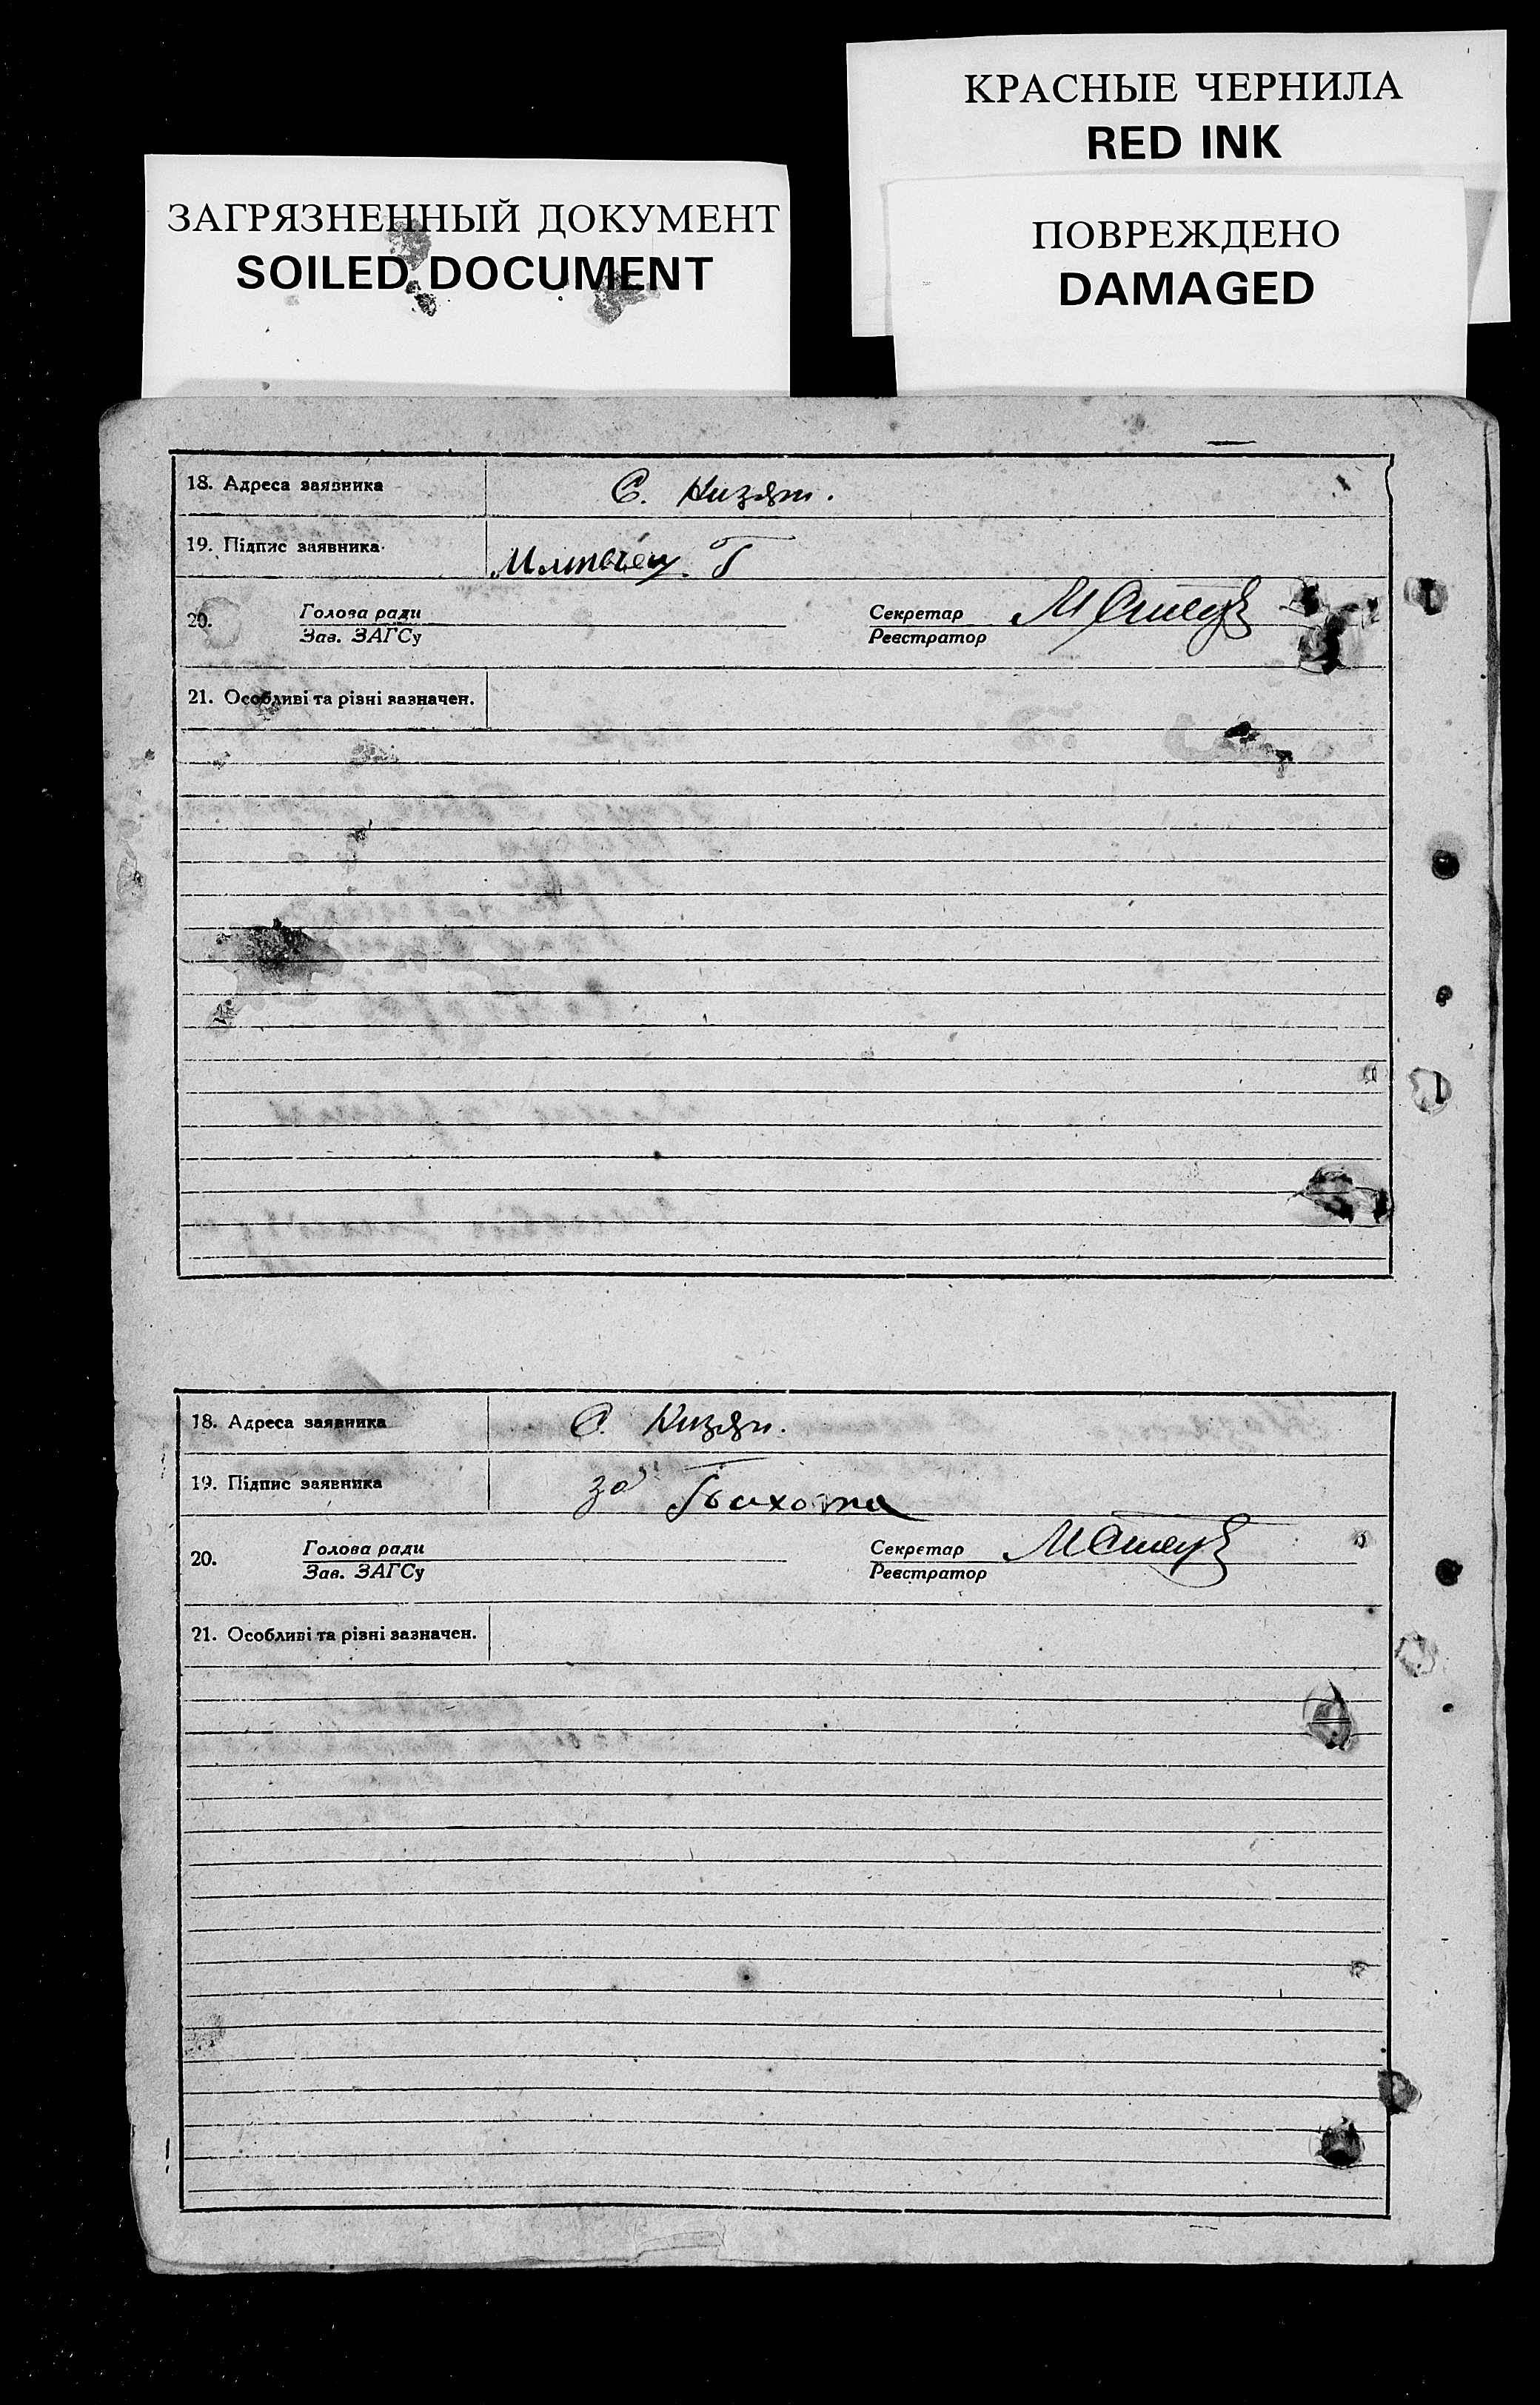 КРАСНЫЕ ЧЕРНИЛА
RED INK
ЗАГРЯЗНЕННЫЙ ДОКУМЕНТ
SOILED DOCUMENT
ПОВРЕЖДЕНО
DAMAGED
18. Адреса заявника С.
19. Підпис заявника Г
20. Голова ради Секретар
Зав. ЗАГСу Реєстратор
21. Особливі та різні зазначен.
18. Адреса заявника С.
19. Підпис заявника за
20. Голова ради Секретар
Зав. ЗАГСу Реєстратор
21. Особливі та різні зазначен.